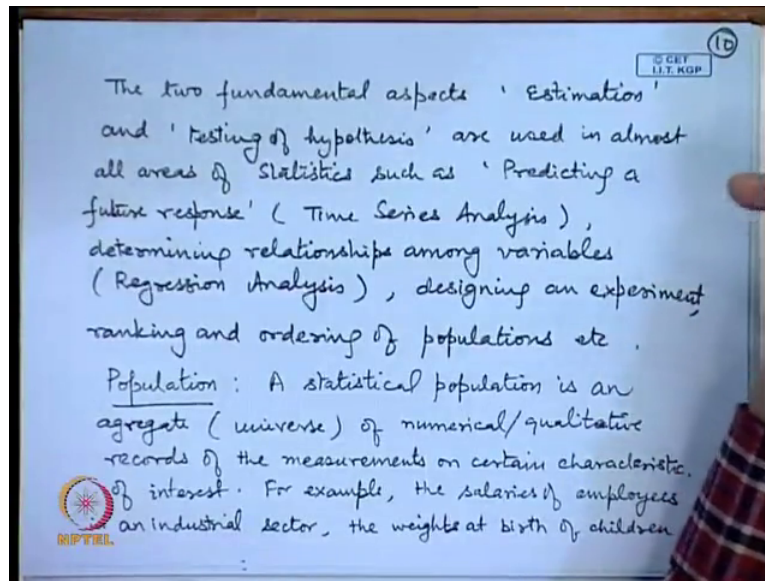 10
© CET
I.I.T. KGP
The two fundamental aspects 'Estimation'
and 'testing of hypothesis' are used in almost
all areas of Statistics such as 'Predicting a
future response' (Time Series Analysis),
determining relationships among variables
(Regression Analysis), designing an experiment,
ranking and ordering of populations etc.
Population : A statistical population is an
agregate (universe) of numerical/qualitative
records of the measurements on certain characteristic.
of interest. For example, the salaries of employees
an industrial sector, the weights at birth of children
NPTEL